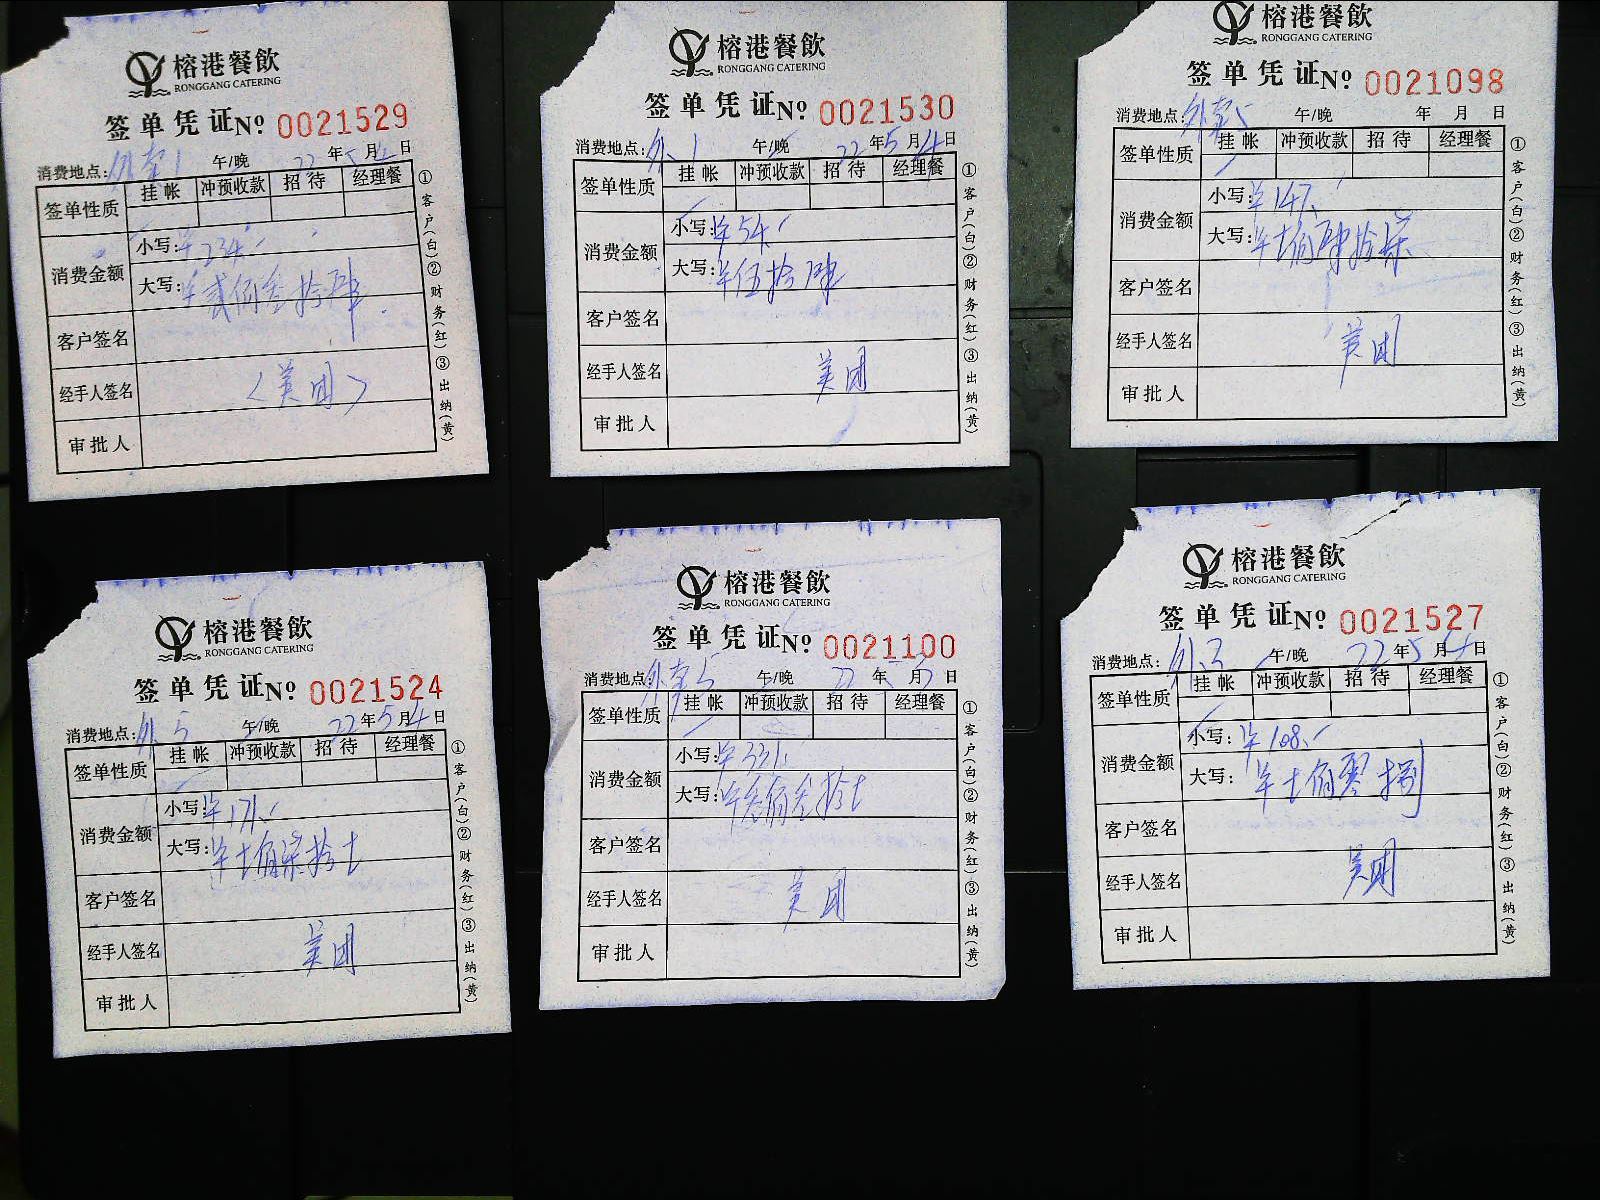 榕港餐飲
RONGGANG CATERING
签单凭证№ 0021529
消费地点: 外卖1 午/晚 22年5月4日
签单性质 挂帐 冲预收款 招待 经理餐
消费金额 小写: ¥234.-
大写: ¥贰佰叁拾肆
客户签名
经手人签名 〈美团〉
审批人
①客户(白)②财务(红)③出纳(黄)
榕港餐飲
RONGGANG CATERING
签单凭证№ 0021530
消费地点: 外.1 午/晚 22年5月4日
签单性质 挂帐 冲预收款 招待 经理餐
消费金额 小写: ¥54.-
大写: ¥伍拾肆
客户签名
经手人签名 美团
审批人
①客户(白)②财务(红)③出纳(黄)
榕港餐飲
RONGGANG CATERING
签单凭证№ 0021098
消费地点: 外卖5 午/晚 年 月 日
签单性质 挂帐 冲预收款 招待 经理餐
消费金额 小写: ¥147.-
大写: ¥士佰肆拾柒
客户签名
经手人签名 美团
审批人
①客户(白)②财务(红)③出纳(黄)
榕港餐飲
RONGGANG CATERING
签单凭证№ 0021524
消费地点: 外.5 午/晚 22年5月4日
签单性质 挂帐 冲预收款 招待 经理餐
消费金额 小写: ¥171.-
大写: ¥士佰柒拾士
客户签名
经手人签名 美团
审批人
①客户(白)②财务(红)③出纳(黄)
榕港餐飲
RONGGANG CATERING
签单凭证№ 0021100
消费地点: 外卖5 午/晚 22年 月 日
签单性质 挂帐 冲预收款 招待 经理餐
消费金额 小写: ¥331.
大写: ¥叁佰叁拾士
客户签名
经手人签名 美团
审批人
①客户(白)②财务(红)③出纳(黄)
榕港餐飲
RONGGANG CATERING
签单凭证№ 0021527
消费地点: 外.3 午/晚 22年5月4日
签单性质 挂帐 冲预收款 招待 经理餐
消费金额 小写: ¥108.-
大写: ¥士佰零捌
客户签名
经手人签名 美团
审批人
①客户(白)②财务(红)③出纳(黄)